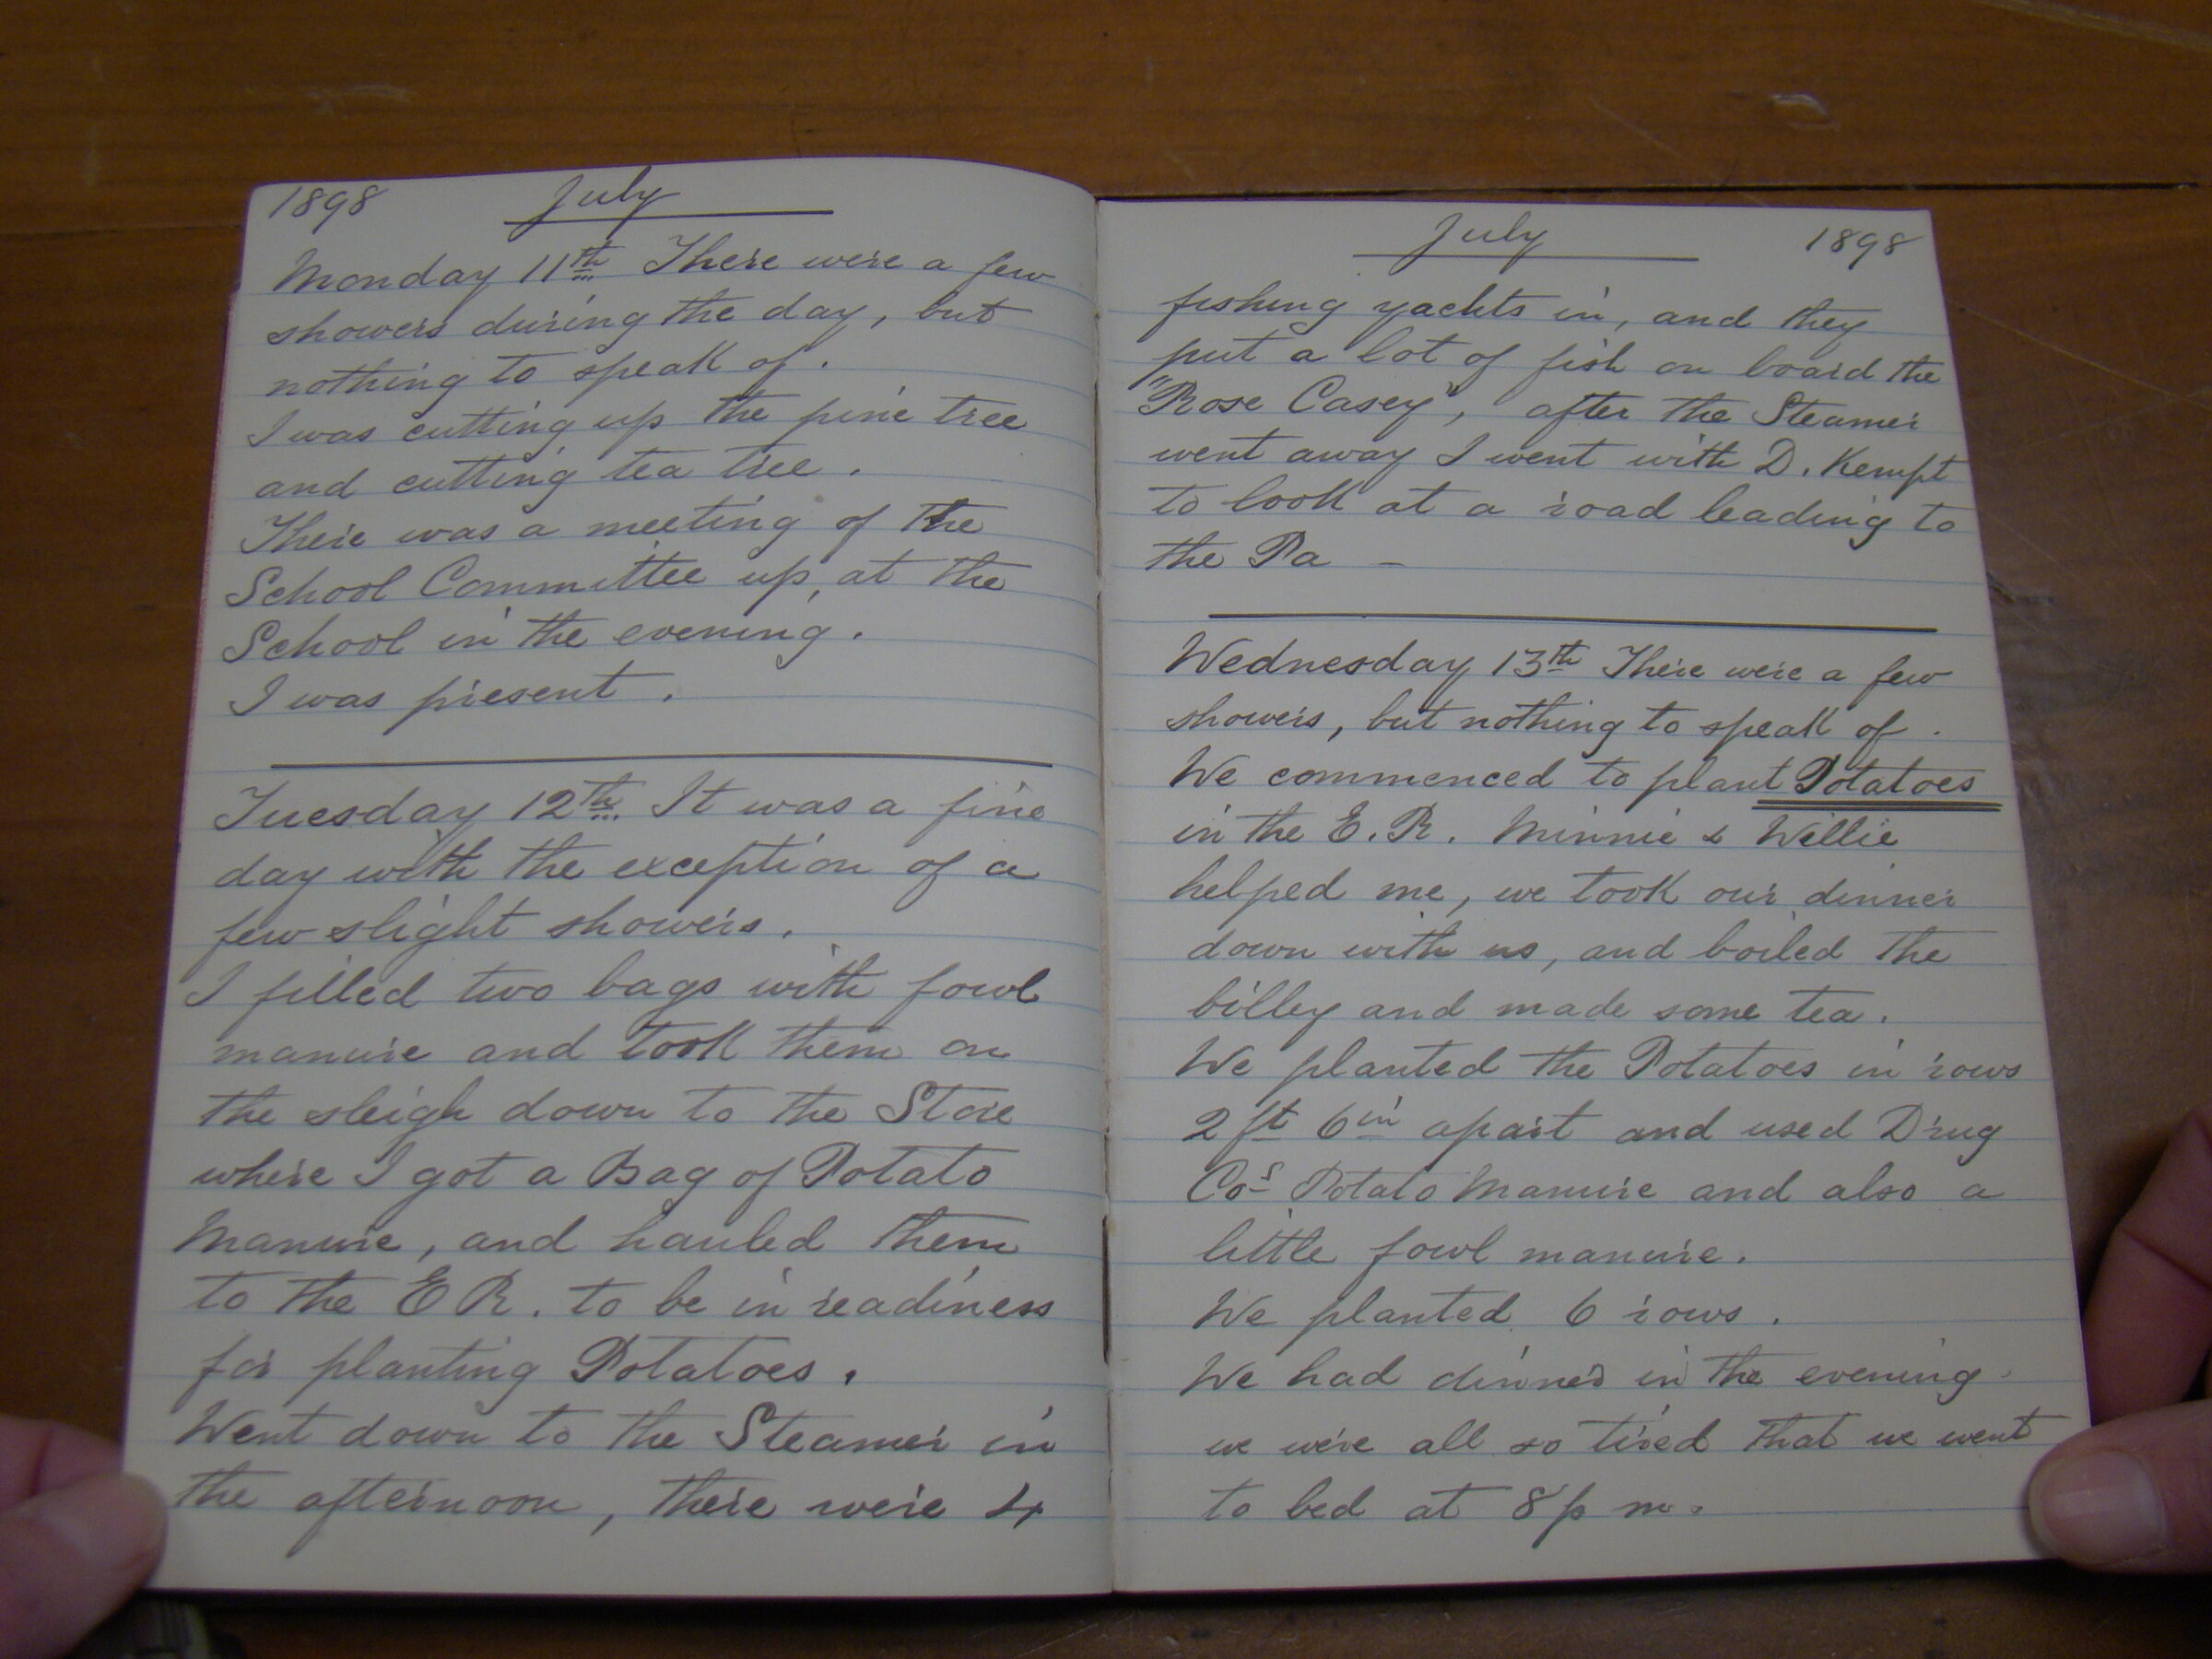 1898 July
Monday 11th There were a few
showers during the day, but
nothing to speak of.
I was cutting up the pine tree
and cutting tea tree.
There was a meeting of the
School Committee up, at the
School in the evening.
I was present.
Tuesday 12th It was a fine
day with the exception of a
few slight showers.
I filled two bags with fowl
manure and took them on
the sleigh down to the Store
where I got a Bag of Potato
Manure, and hauled them
to the E R. to be in readiness
for planting Potatoes.
Went down to the Steamer in
the afternoon, there were 4
July 1898
fishing yachts in, and they
put a lot of fish on board the
"Rose Casey", after the Steamer
went away I went with D. Kempt
to look at a road leading to
the Pa -
Wednesday 13th There were a few
showers, but nothing to speak of.
We commenced to plant Potatoes
in the E. R. Minnie & Willie
helped me, we took our dinner
down with us, and boiled the
billey and made some tea.
We planted the Potatoes in rows
2 ft 6 in apart and used Drug
Cos Potato Manure and also a
little fowl manure.
We planted 6 rows.
We had dinner in the evening
we were all so tired that we went
to bed at 8 p m.